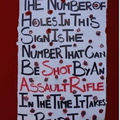 THE NUMBER OF
HOLES IN THIS
SIGN IS THE
NUMBER THAT CAN
BE SHOT BY AN
ASSAULT RIFLE
IN THE TIME IT TAKES